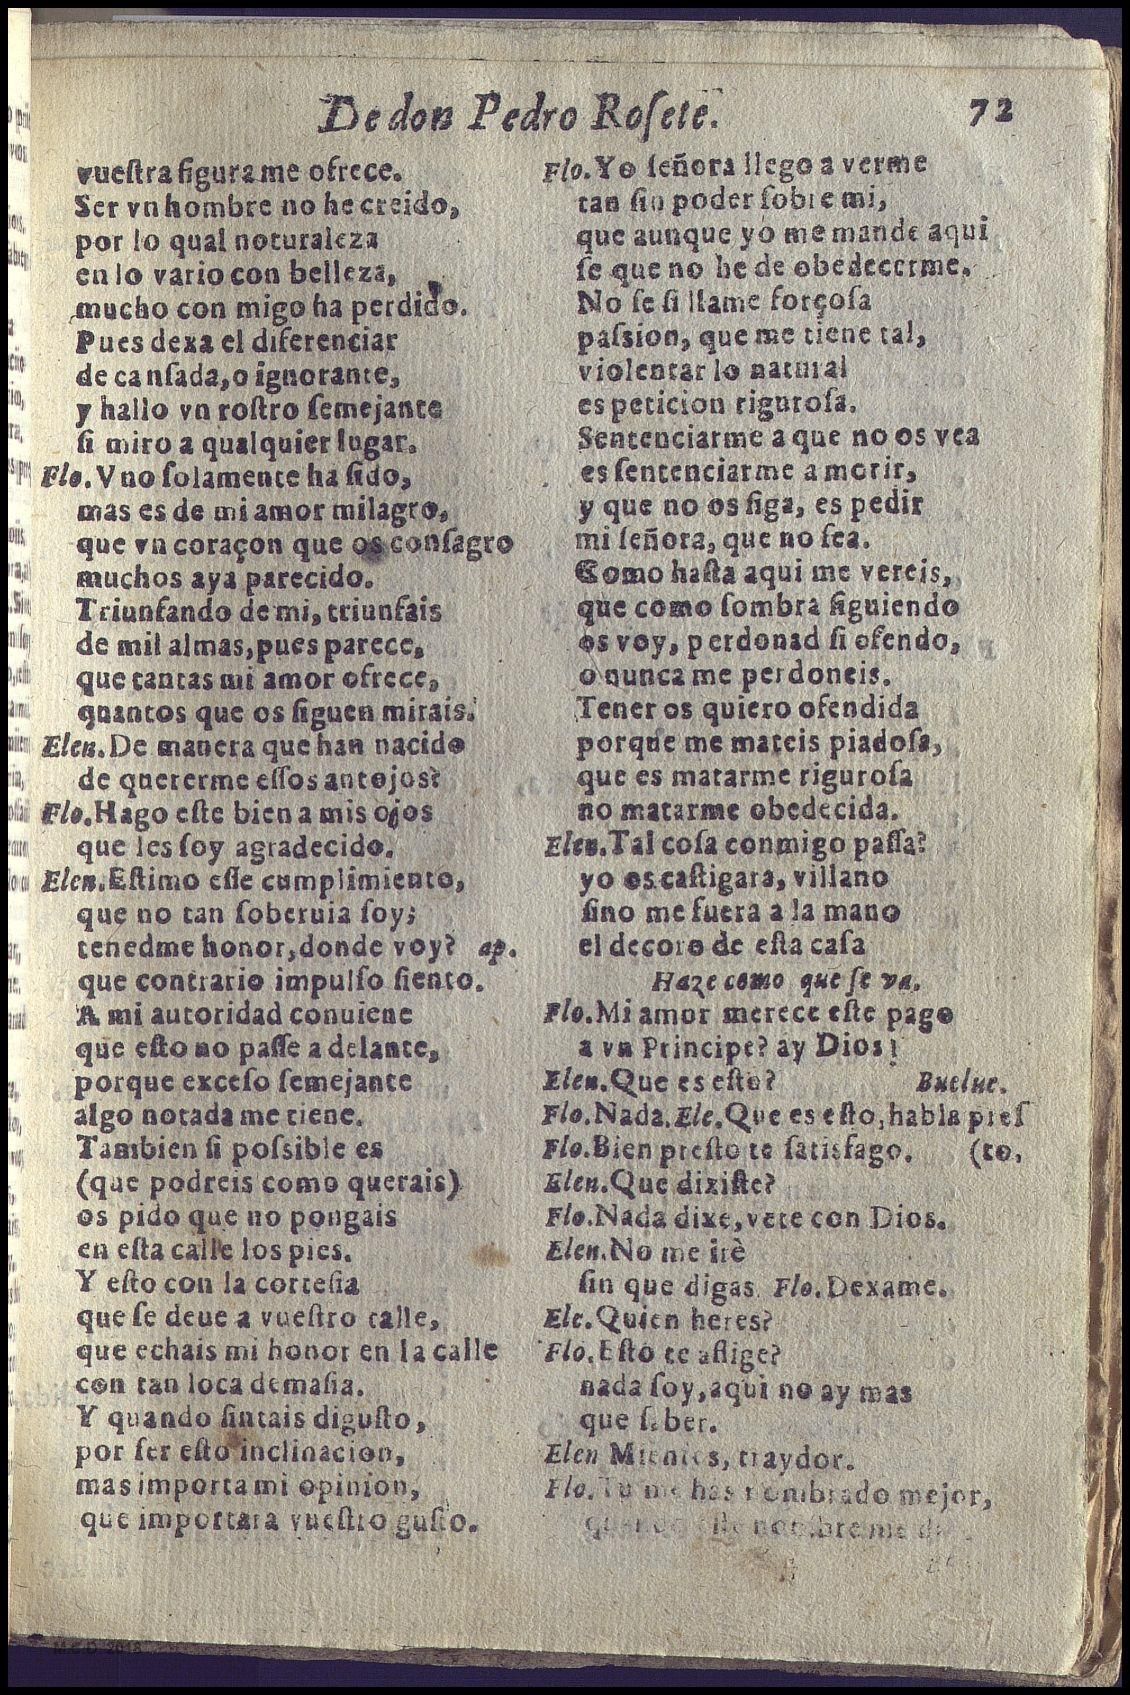 De don Pedro Roſete.
72
vueſtra figura me ofrece.
Ser vn hombre no he creido,
por lo qual noturaleza
en lo vario con belleza,
mucho con migo ha perdido.
Pues dexa el diferenciar
de canſada, o ignorante,
y hallo vn roſtro ſemejante
ſi miro a qualquier lugar.
Flo. Vno ſolamente ha ſido,
mas es de mi amor milagro,
que vn coraçon que os conſagro
muchos aya parecido.
Triunfando de mi, triunfais
de mil almas, pues parece,
que tantas mi amor ofrece,
quantos que os ſiguen mirais.
Elen. De manera que han nacido
de quererme eſſos antojos?
Flo. Hago eſte bien a mis ojos
que les ſoy agradecido.
Elen. Eſtimo eſſe cumplimiento,
que no tan ſoberuia ſoy;
tenedme honor, donde voy? ap.
que contrario impulſo ſiento.
A mi autoridad conuiene
que eſto no paſſe a delante,
porque exceſo ſemejante
algo notada me tiene.
Tambien ſi poſsible es
(que podreis como querais)
os pido que no pongais
en eſta calle los pies.
Y eſto con la corteſia
que ſe deue a vueſtro talle,
que echais mi honor en la calle
con tan loca demaſia.
Y quando ſintais diguſto,
por ſer eſto inclinacion,
mas importa mi opinion,
que importara vueſtro guſto.
Flo. Yo ſeñora llego a verme
tan ſin poder ſobre mi,
que aunque yo me mande aqui
ſe que no he de obedecerme.
No ſe ſi llame forçoſa
paſsion, que me tiene tal,
violentar lo natural
es peticion riguroſa.
Sentenciarme a que no os vea
es ſentenciarme a morir,
y que no os ſiga, es pedir
mi ſeñora, que no ſea.
Como haſta aqui me vereis,
que como ſombra ſiguiendo
os voy, perdonad ſi ofendo,
o nunca me perdoneis.
Teneros quiero ofendida
porque me mateis piadoſa,
que es matarme riguroſa
no matarme obedecida.
Elen. Tal coſa conmigo paſſa?
yo os caſtigara, villano
ſino me fuera a la mano
el decoro de eſta caſa
Haze como que ſe va.
Flo. Mi amor merece eſte pago
a vn Principe? ay Dios!
Elen. Que es eſto? Buelue.
Flo. Nada. Ele. Que es eſto, habla preſ
Flo. Bien preſto te ſatisfago. (to,
Elen. Que dixiſte?
Flo. Nada dixe, vete con Dios.
Elen. No me irè
ſin que digas. Flo. Dexame.
Ele. Quien heres?
Flo. Eſto te aflige?
nada ſoy, aqui no ay mas
que ſaber.
Elen Mientes, traydor.
Flo. Tu me has nombrado mejor,
nombre me
M.C.D. 2018